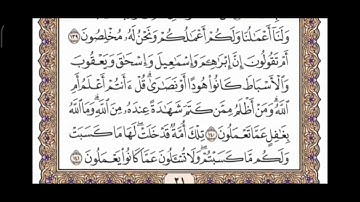 وَلَنَآ أَعْمَٰلُنَا وَلَكُمْ أَعْمَٰلُكُمْ وَنَحْنُ لَهُۥ مُخْلِصُونَ ١٣٩
أَمْ تَقُولُونَ إِنَّ إِبْرَٰهِۦمَ وَإِسْمَٰعِيلَ وَإِسْحَٰقَ وَيَعْقُوبَ
وَٱلْأَسْبَاطَ كَانُوا۟ هُودًا أَوْ نَصَٰرَىٰ ۗ قُلْ ءَأَنتُمْ أَعْلَمُ أَمِ
ٱللَّهُ ۗ وَمَنْ أَظْلَمُ مِمَّن كَتَمَ شَهَٰدَةً عِندَهُۥ مِنَ ٱللَّهِ ۗ وَمَا ٱللَّهُ
بِغَٰفِلٍ عَمَّا تَعْمَلُونَ ١٤٠ تِلْكَ أُمَّةٌ قَدْ خَلَتْ ۖ لَهَا مَا كَسَبَتْ
وَلَكُم مَّا كَسَبْتُمْ ۖ وَلَا تُسْـَٔلُونَ عَمَّا كَانُوا۟ يَعْمَلُونَ ١٤١
٢١